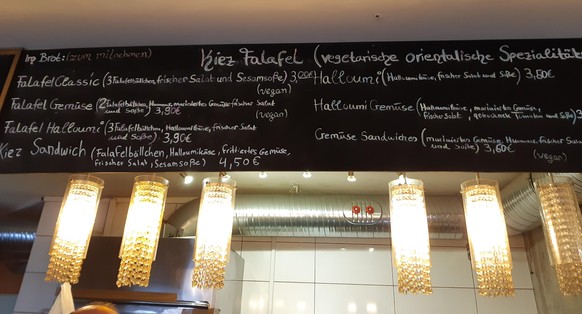 Im Brot: (zum mitnehmen)
Kiez Falafel (vegetarische orientalische Spezialität
Falafel Classic (3 Falafelbällchen, frischer Salat und Sesamsoße) 3,00€
(vegan)
Falafel Gemüse (2 Falafelbällchen, Hummus, mariniertes Gemüse, frischer Salat
und Soße) 3,90€
(vegan)
Falafel Halloumi (3 Falafelbällchen, Halloumikäse, frischer Salat
und Soße) 3,90€
Kiez Sandwich (Falafelbällchen, Halloumikäse, frittiertes Gemüse,
frischer Salat, Sesamsoße) 4,50€
Halloumi (Halloumikäse, frischer Salat und Soße) 3,50€
Halloumi Gemüse (Halloumikäse, mariniertes Gemüse,
frischer Salat, Tomaten und Soße) 3
Gemüse Sandwiches (mariniertes Gemüse, Hummus, frischer Salat
und Soße) 3,60€
(vegan)